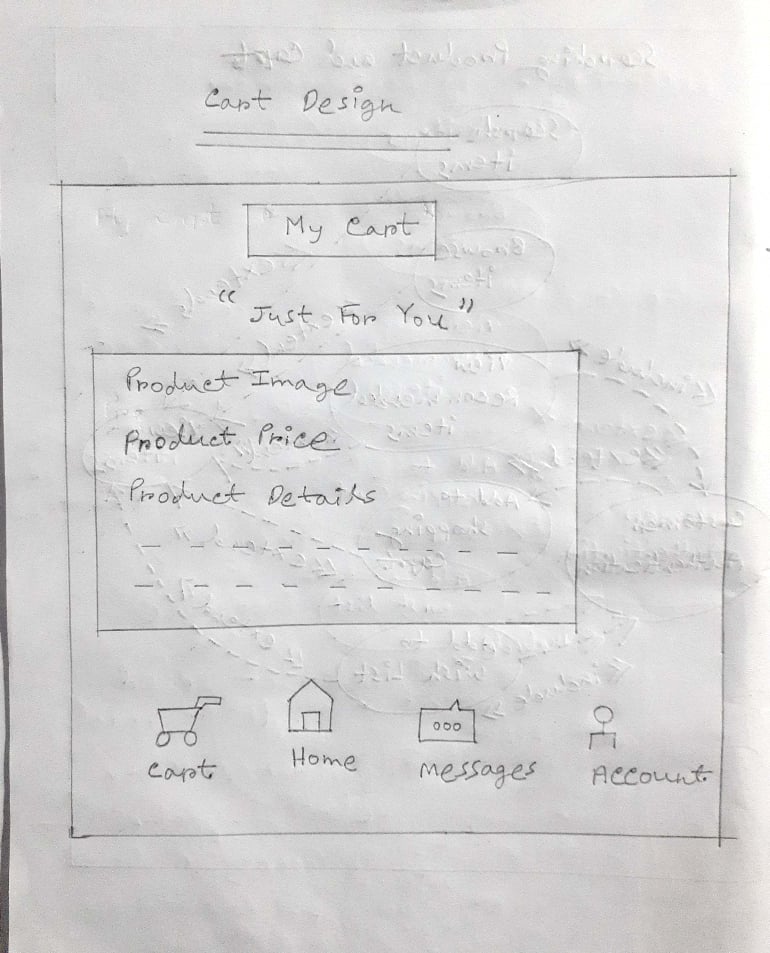 Cart Design
My Cart
"Just For You"
Product Image
Product Price
Product Details
Cart
Home
Messages
Account